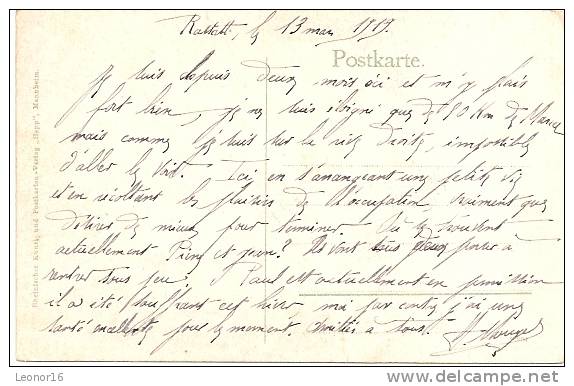 Rastatt, le 13 mars 1919.
Postkarte.
Je suis depuis deux mois ici et m'y plais
fort bien, je ne suis éloigné que de 180 Km de
mais comme je suis sur la rive Droite, impossible
d'aller le voir. Ici en s'arrangeant une petite vie
et en récoltant les plaisirs de l'occupation vraiment que
désirer de mieux pour terminer. Où se trouvent
actuellement Pierre et Jean? Ils vont tous deux penser à
rentrer sous peu. Paul est actuellement en permission
il a été souffrant cet hiver moi par contre j'ai une
santé excellente pour le moment. Amitiés à tous.
Rheinischer Kunst- und Postkarten-Verlag „Hepp", Mannheim.
Leonor16
delcampe.net